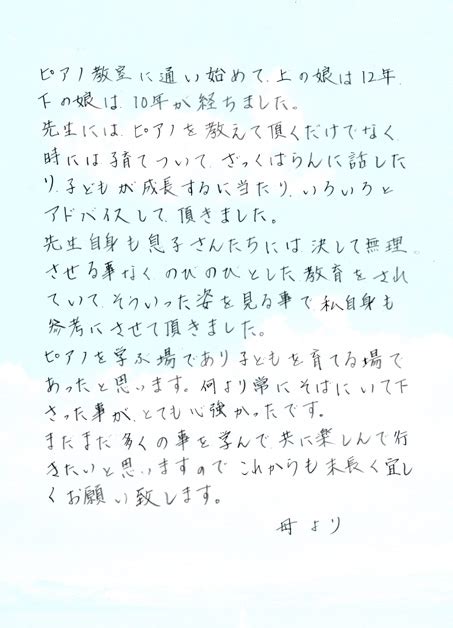 ピアノ教室に通い始めて、上の娘は12年、
下の娘は、10年が経ちました。
先生には、ピアノを教えて頂くだけでなく、
時には子育てついて、ざっくばらんに話した
り、子どもが成長するに当たり、いろいろと
アドバイスして頂きました。
先生自身も息子さんたちには、決して無理
させる事なく、のびのびとした教育をされ
ていて、そういった姿を見る事で、私自身も
参考にさせて頂きました。
ピアノを学ぶ場であり子どもを育てる場で
あったと思います。何より常にそばにいて下
さった事が、とても心強かったです。
まだまだ多くの事を学んで、共に楽しんで行
きたいと思いますので、これからも末長く宜し
くお願い致します。
母より